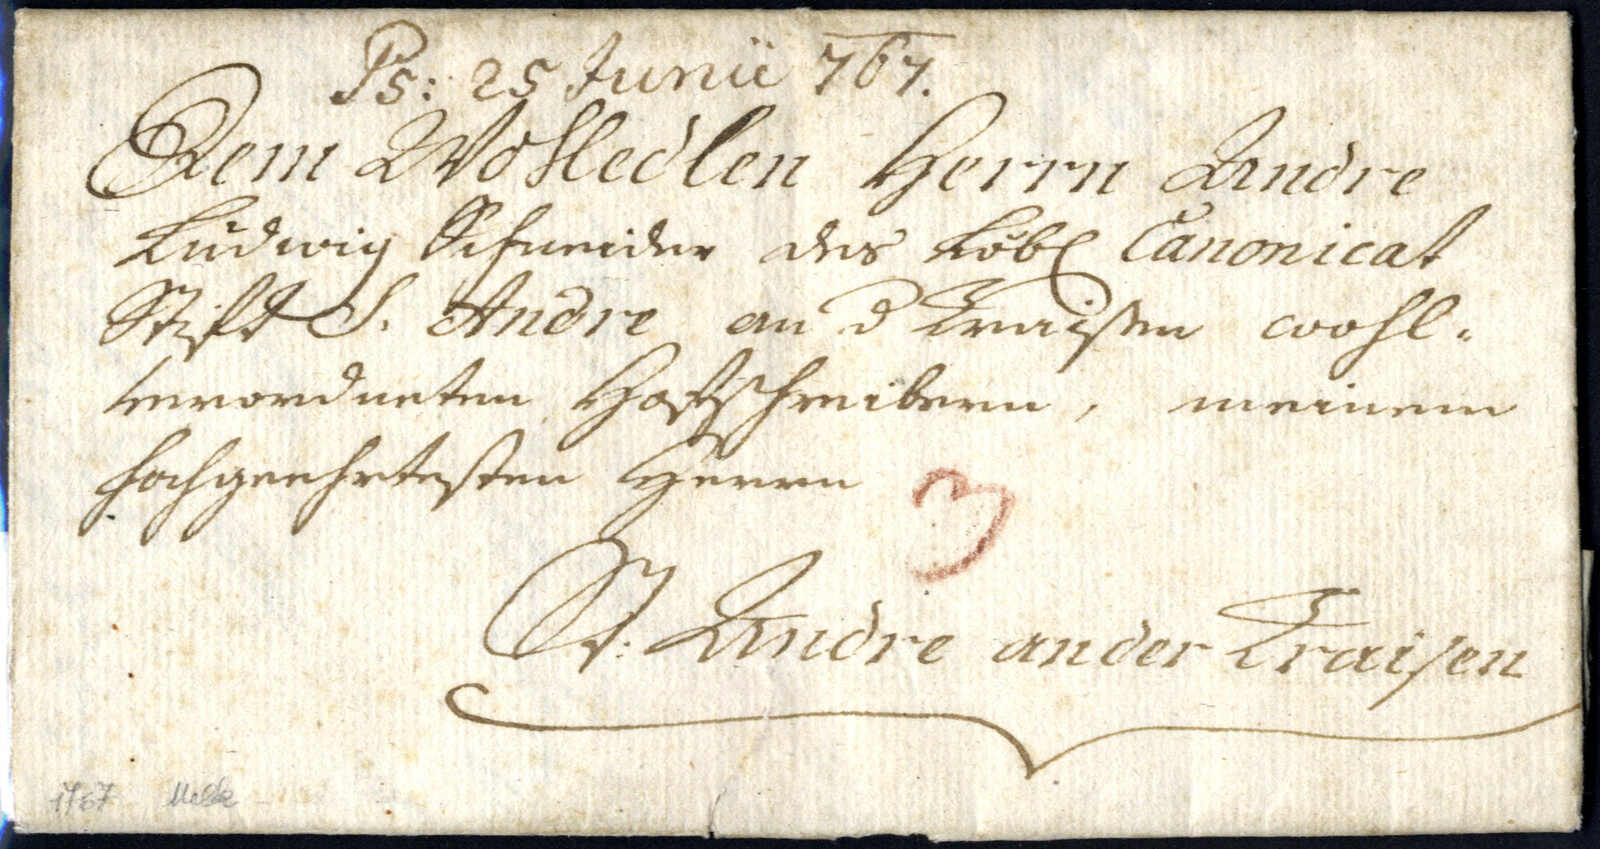 Ps: 25 Junii 767.
Dem Wohledlen Herrn Andre
Ludwig Schneider des Löbl Canonicat
Stift S. Andre an d Traisen wohl-
verordneten Hofschreibern, meinem
hochgeehrtesten Herrn
3
St: Andre an der Traisen
1767 Melk